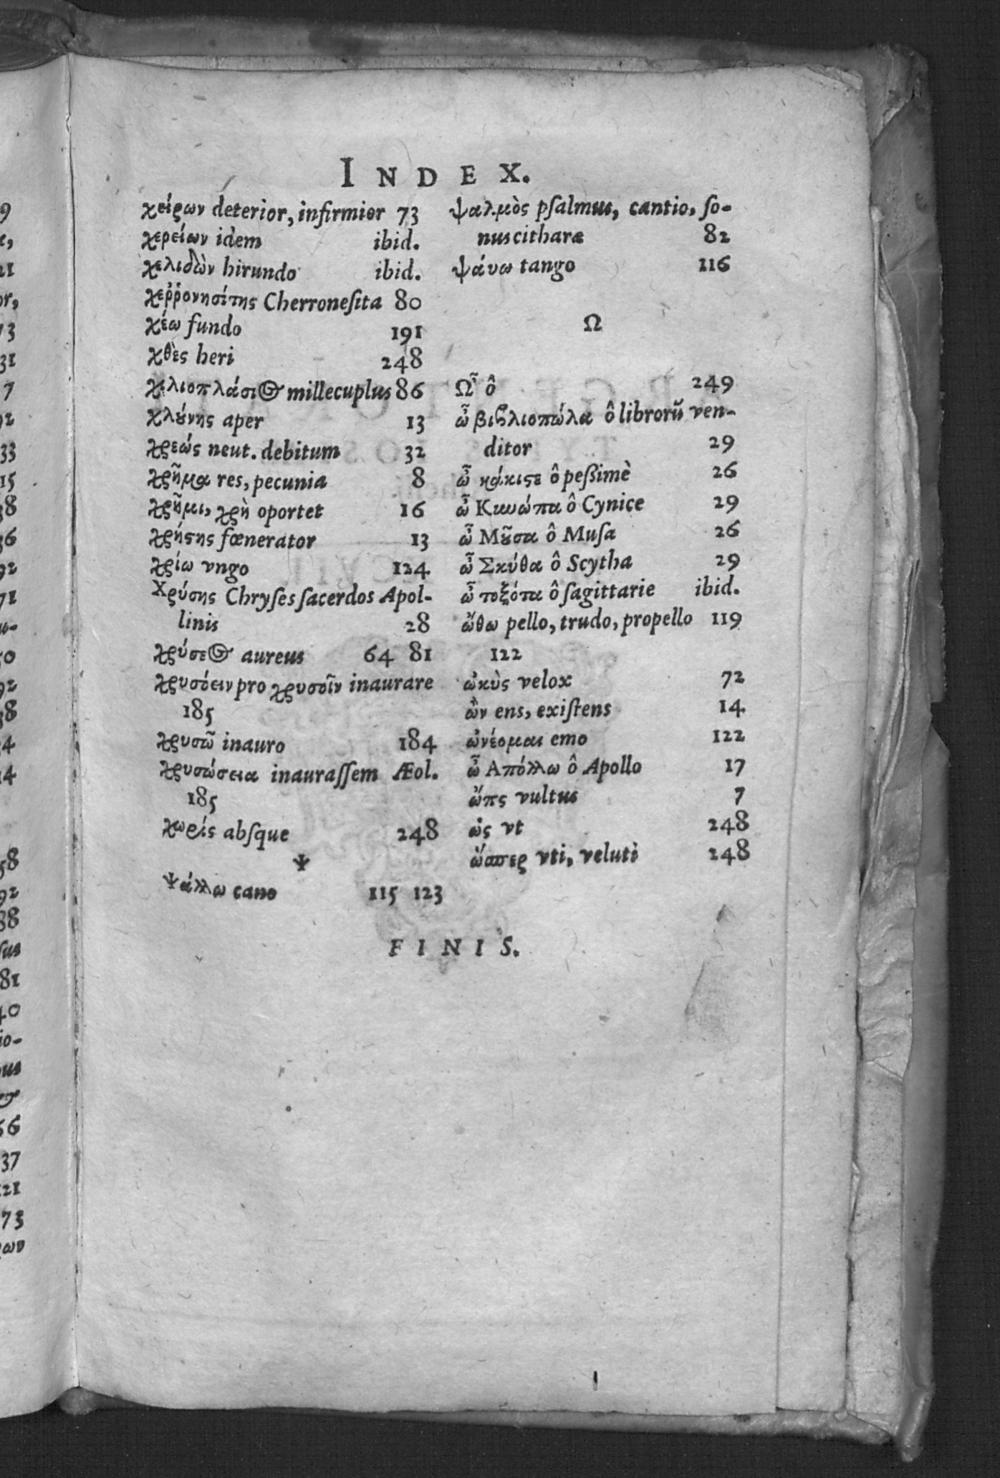 INDEX.
χείρων deterior, infirmior 73
χερείων idem ibid.
χελιδὼν hirundo ibid.
χεῤῥονησίτης Cherronesita 80
χέω fundo 191
χθὲς heri 248
χιλιοπλάσιος millecuplus 86
χλούνης aper 13
χρεώς neut. debitum 32
χρῆμα res, pecunia 8
χρῆμι, χρὴ oportet 16
χρήστης fœnerator 13
χρίω vngo 124
Χρύσης Chryses sacerdos Apol-
linis 28
χρύσεος aureus 64 81
χρυσόειν pro χρυσοῖν inaurare
185
χρυσῶ inauro 184
χρυσώσεια inaurassem Æol.
185
χωρίς absque 248
Ψ
Ψάλλω cano 115 123
ψαλμὸς psalmus, cantio, so-
nus citharæ 82
ψάυω tango 116
Ω
Ὦ ô 249
ὦ βιβλιοπώλα ô librorũ ven-
ditor 29
ὦ κάκιστε ô peßimè 26
ὦ Κυνώπα ô Cynice 29
ὦ Μοῦσα ô Musa 26
ὦ Σκύθα ô Scytha 29
ὦ τοξότα ô sagittarie ibid.
ὤθω pello, trudo, propello 119
122
ὠκὺς velox 72
ὢν ens, existens 14
ὠνέομαι emo 122
ὦ Απόλλω ô Apollo 17
ὤπς vultus 7
ὡς vt 248
ὥσπερ vti, veluti 248
FINIS.